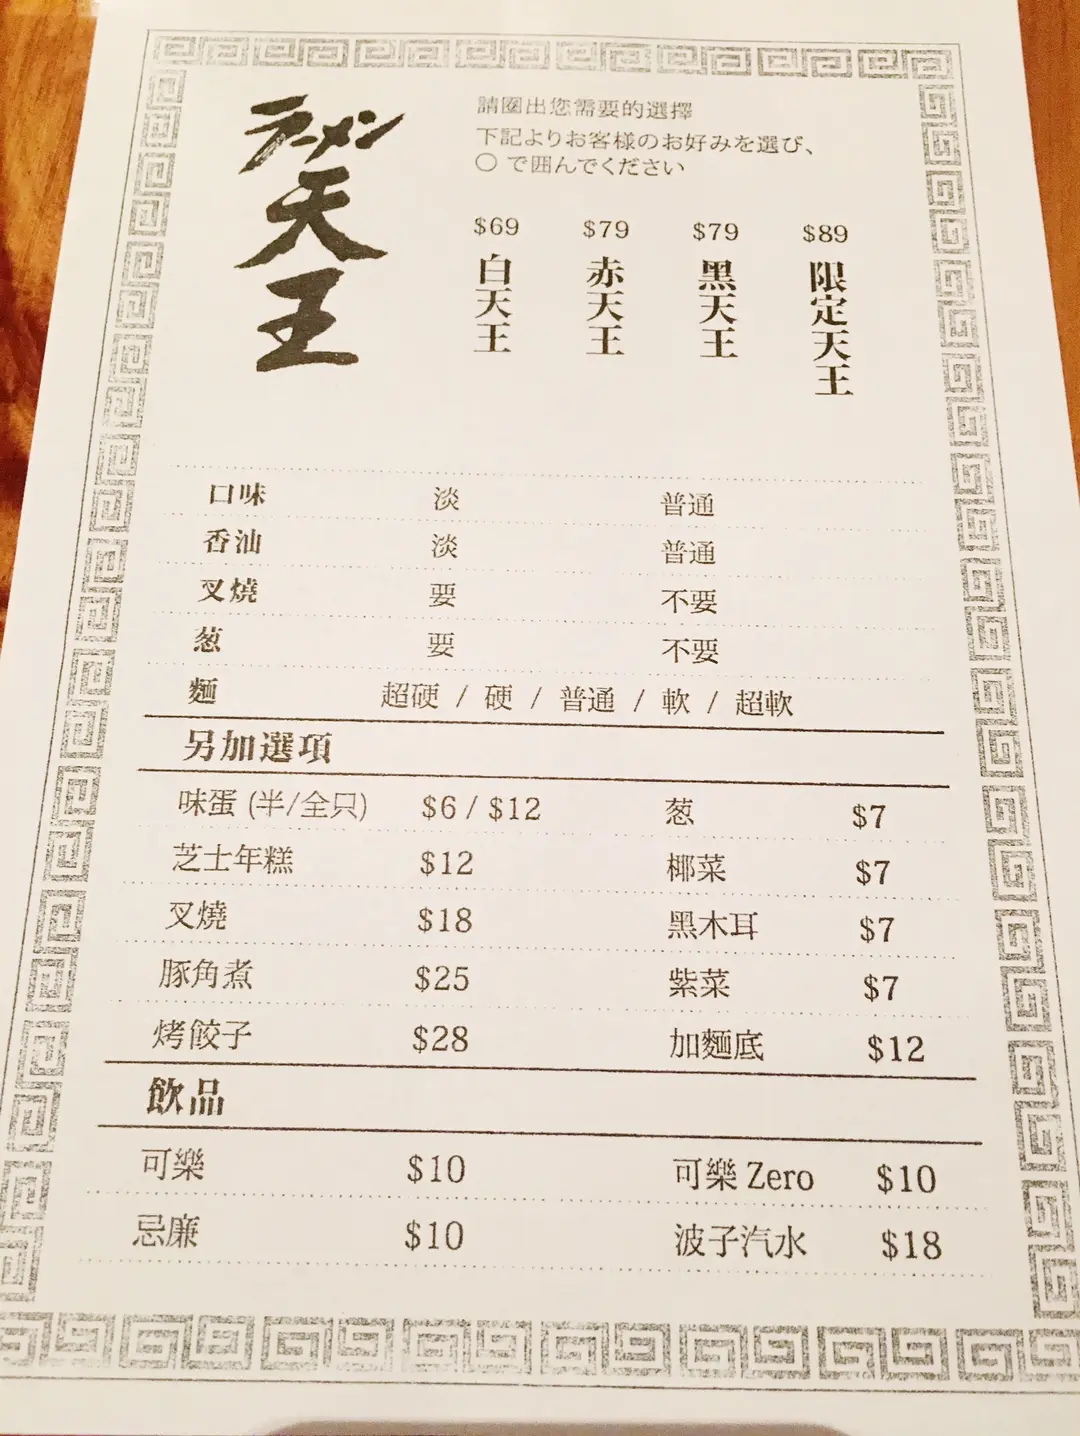 ラーメン
天王
請圈出您需要的選擇
下記よりお客様のお好みを選び、
○で囲んでください
$69 $79 $79 $89
白天王 赤天王 黑天王 限定天王
口味 淡 普通
香油 淡 普通
叉燒 要 不要
葱 要 不要
麵 超硬 / 硬 / 普通 / 軟 / 超軟
另加選項
味蛋 (半/全只) $6 / $12 葱 $7
芝士年糕 $12 椰菜 $7
叉燒 $18 黑木耳 $7
豚角煮 $25 紫菜 $7
烤餃子 $28 加麵底 $12
飲品
可樂 $10 可樂 Zero $10
忌廉 $10 波子汽水 $18